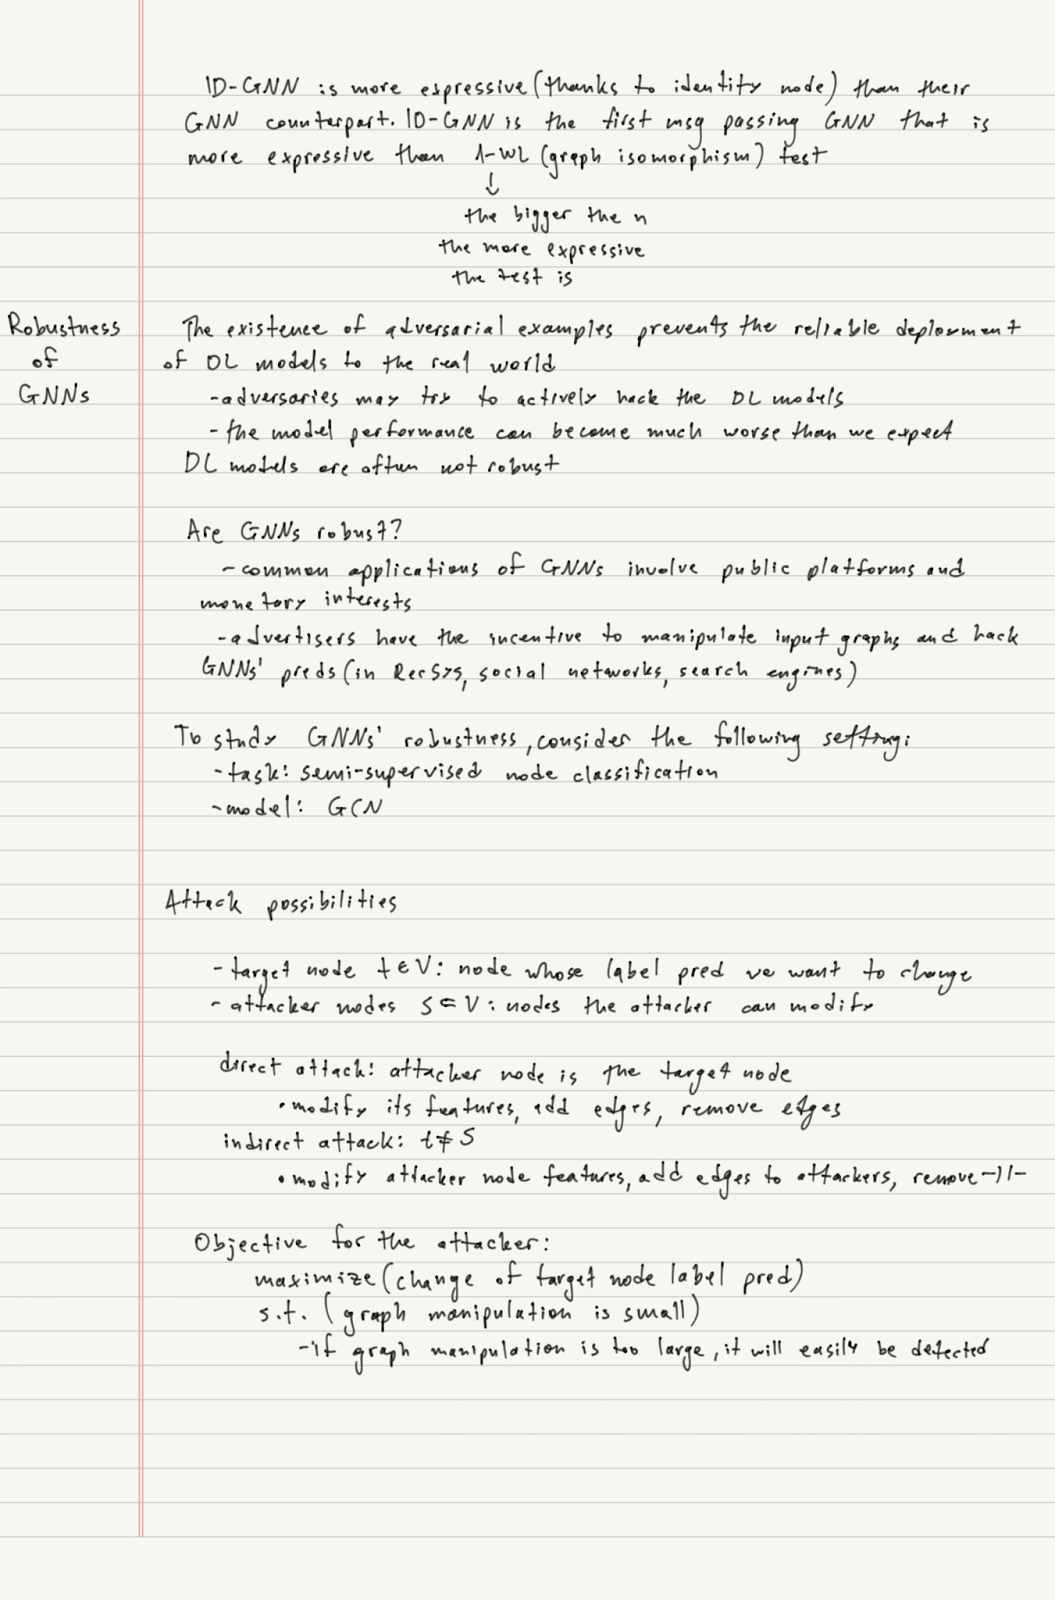 ID-GNN is more expressive (thanks to identity node) than their
GNN counterpart. ID-GNN is the first msg passing GNN that is
more expressive than 1-WL (graph isomorphism) test
↓
the bigger the n
the more expressive
the test is
Robustness
of
GNNs
The existence of adversarial examples prevents the reliable deployment
of DL models to the real world
-adversaries may try to actively hack the DL models
-the model performance can become much worse than we expect
DL models are often not robust
Are GNNs robust?
-common applications of GNNs involve public platforms and
monetary interests
-advertisers have the incentive to manipulate input graphs and hack
GNNs' preds (in RecSys, social networks, search engines)
To study GNNs' robustness, consider the following setting:
-task: semi-supervised node classification
-model: GCN
Attack possibilities
-target node t∈V: node whose label pred we want to change
-attacker nodes S⊂V: nodes the attacker can modify
direct attack: attacker node is the target node
•modify its features, add edges, remove edges
indirect attack: t∉S
•modify attacker node features, add edges to attackers, remove -||-
Objective for the attacker:
maximize (change of target node label pred)
s.t. (graph manipulation is small)
-if graph manipulation is too large, it will easily be detected